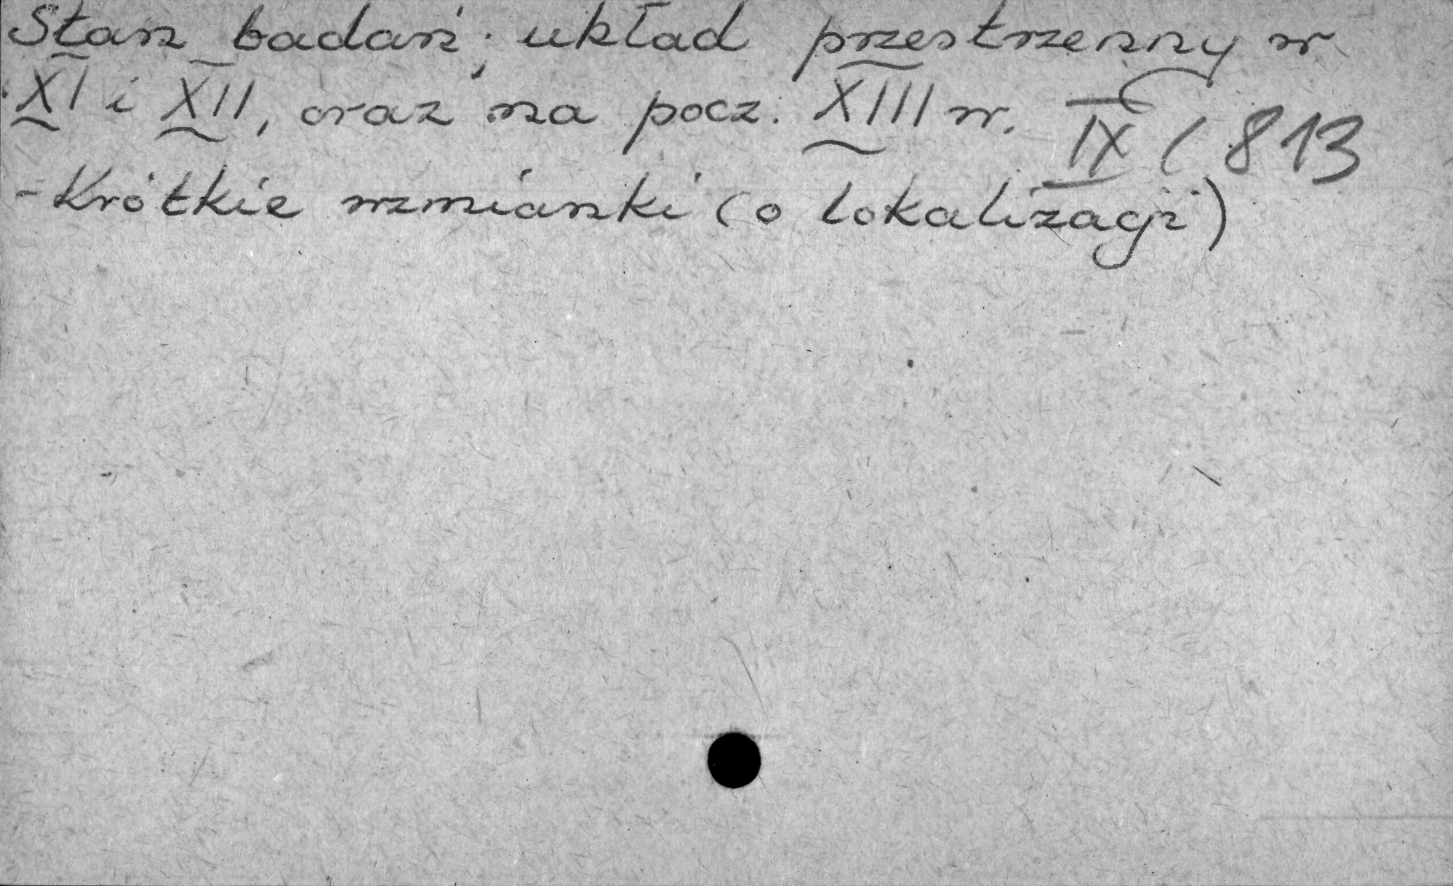 Stan badań; układ przestrzenny w
XI i XII, oraz na pocz. XIII w. IX/813
- Krótkie wzmianki (o lokalizacji)